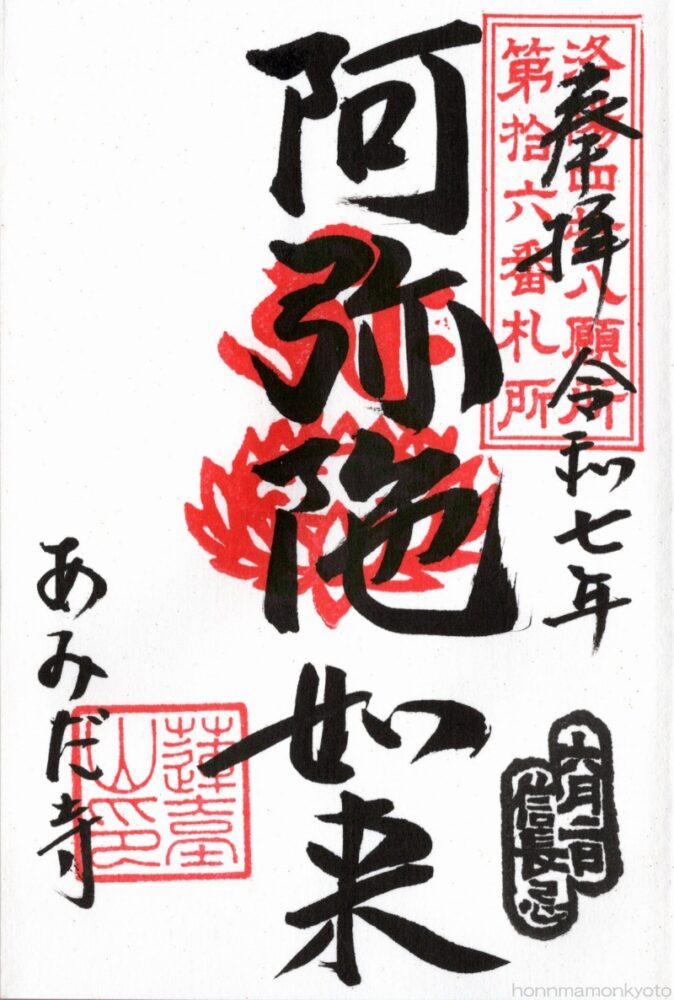 洛陽四十八願所
第拾六番札所
奉拝 令和七年
六月二日
信長忌
阿弥陀如来
蓮臺
山印
あみだ寺
honnmamonkyoto